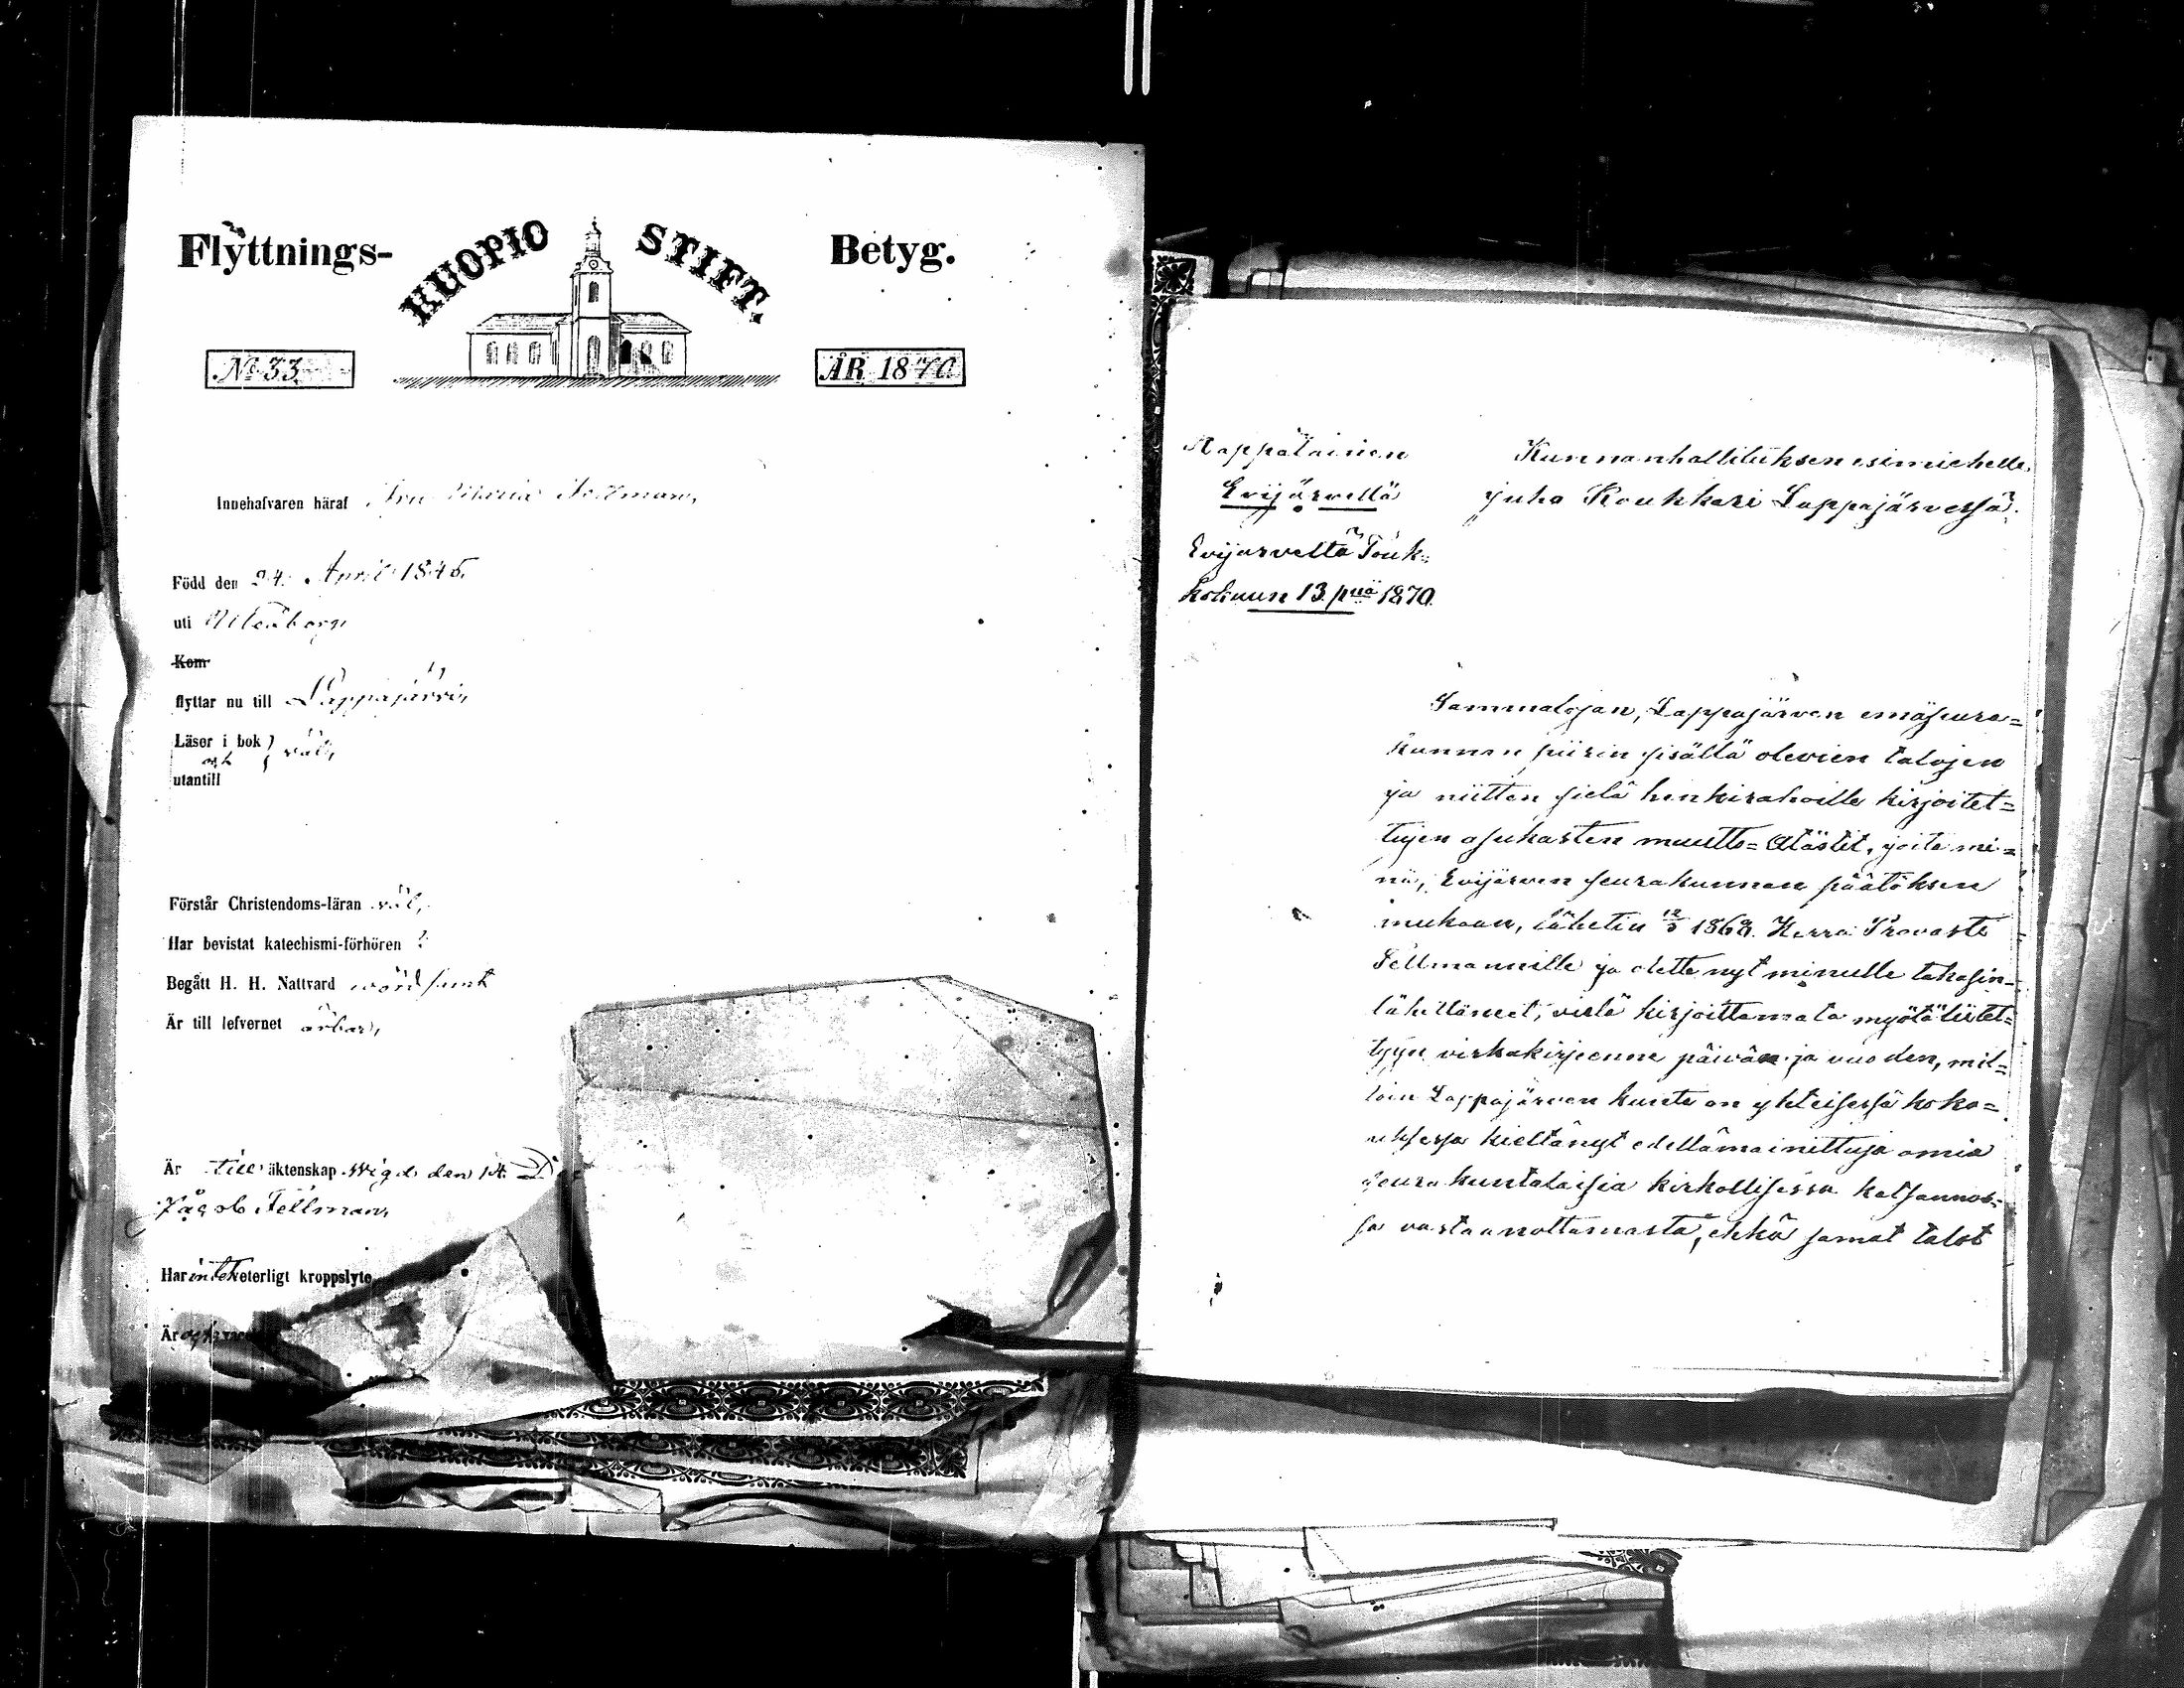 Flyttnings-
KUOPIO STIFT.
Betyg.
No 33
ÅR 1870
Innehafvaren häraf Maria
Född den 24 April 1846,
uti
Kom
flyttar nu till Lappajärvi,
Läser i bok väl,
och
utantill
Förstår Christendoms-läran väl,
Har bevistat katechismi-förhören
Begått H. H. Nattvard wördsamt
Är till lefvernet ärbar,
Är till äktenskap wigd den 14
Jacob Fellman,
Har intet veterligt kroppslyte
Är
Kappalainen
Evijärvellä
Evijärveltä Touk=
kokuun 13 p:nä 1870.
Kunnanhallituksen esimiehelle,
Juho Kouhkari Lappajärvessä.
Sammalojan, Lappajärven emäseura=
kunnan piirin sisällä olevien talojen
ja niitten sielä henkirahoille kirjoitet=
tujen asukasten muutto=Atästit, joita mi=
nä, Evijärven seurakunnan päätöksen
mukaan, lähetin 1869. Herra Provasti
Fellmannille ja olette nyt minulle takasin=
lähettäneet, vielä kirjoittamata myötäliitet=
tyyn virkakirjeenne päivän ja vuoden, mil=
loin Lappajärven kunta on yhteisessä koko=
uksessa kieltänyt edellämainittuja omia
seurakuntalaisia kirkollisessa katsannos=
sa vastaanottamasta, ehkä samat talot